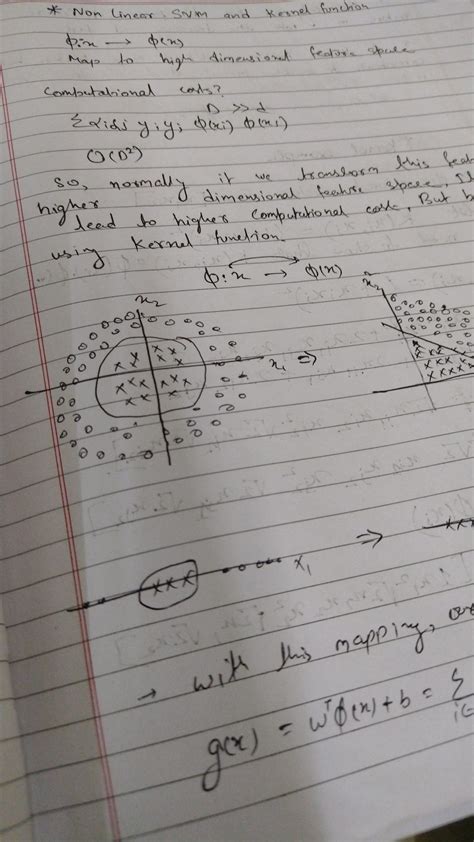 * Non Linear SVM and Kernel function
Φ: x → Φ(x)
Map to high dimensional feature space
Computational costs?
D >> d
Σ αiαj yi yj Φ(xi) Φ(xj)
O(D²)
So, normally if we transform this
higher dimensional feature space,
lead to higher computational cost, But
using Kernel function.
Φ: x → Φ(x)
x₂
x₂
x₁ ⇒
x₁ ⇒
→ with this mapping,
g(x) = wᵀΦ(x) + b = Σ